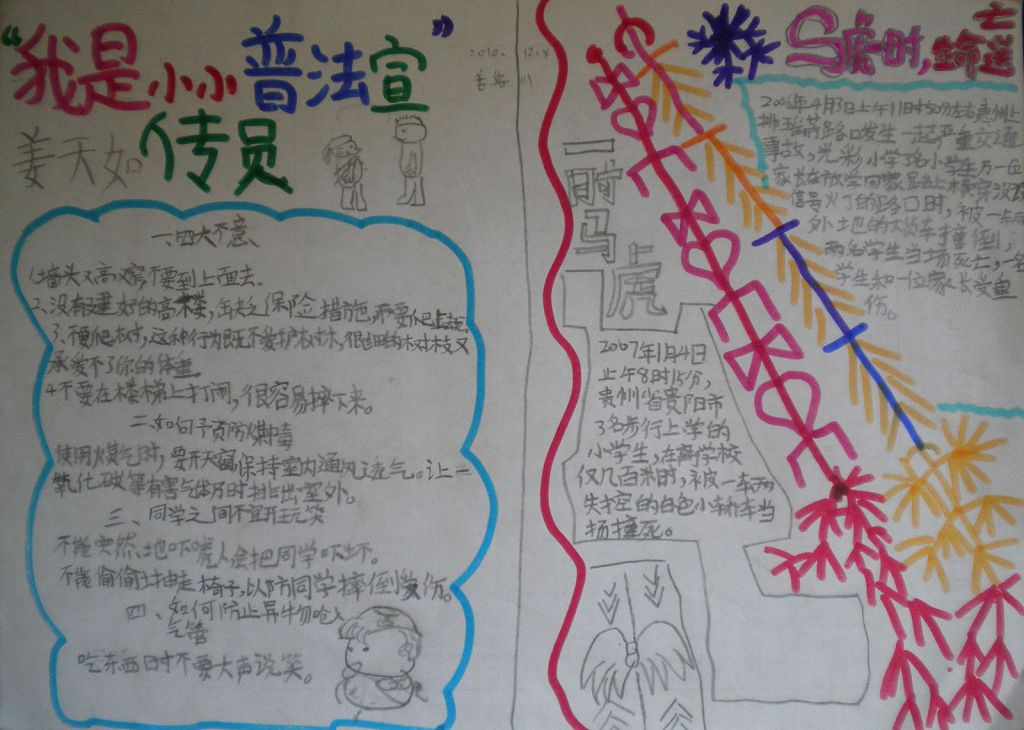 “我是小小普法宣
传员”
姜天如
2010. 12.4
一、四大不意、
1.墙头又高又窄不要到上面去。
2、没有建好的高楼,缺乏保险措施,不要爬上去玩
3、不要爬树,这种行为既不爱护树木,很细的树枝又
承受不了你的体重
4不要在楼梯上打闹,很容易摔下来。
二如何予页防煤中毒
使用煤气时,要开天窗保持室内通风透气。让二
氧化碳等有害气体及时排出室外。
三、同学之间不宜开玩笑
不能突然地吓唬人会把同学吓坏。
不能偷偷抽走椅子,以防同学摔倒受伤。
四、如何防止异物呛入
气管
吃东西时不要大声说笑。
一时马虎
2007年1月4日
上午8时15分,
贵州省贵阳市
3名步行上学的
小学生,在离学校
仅几百米时,被一车两
失控的白色小轿车当
场撞死。
时,生命送
亡
2006年4月3日上午11时50分左右惠州上
排瑶前路口发生一起严重交通
事故,光彩小学3名小学生万一位
家长在放学回家路上横穿没有
信号灯的路口时,被一车两
外土也的大货车撞倒,
两名学生当场死亡,一名
学生和一位家长受重
伤。